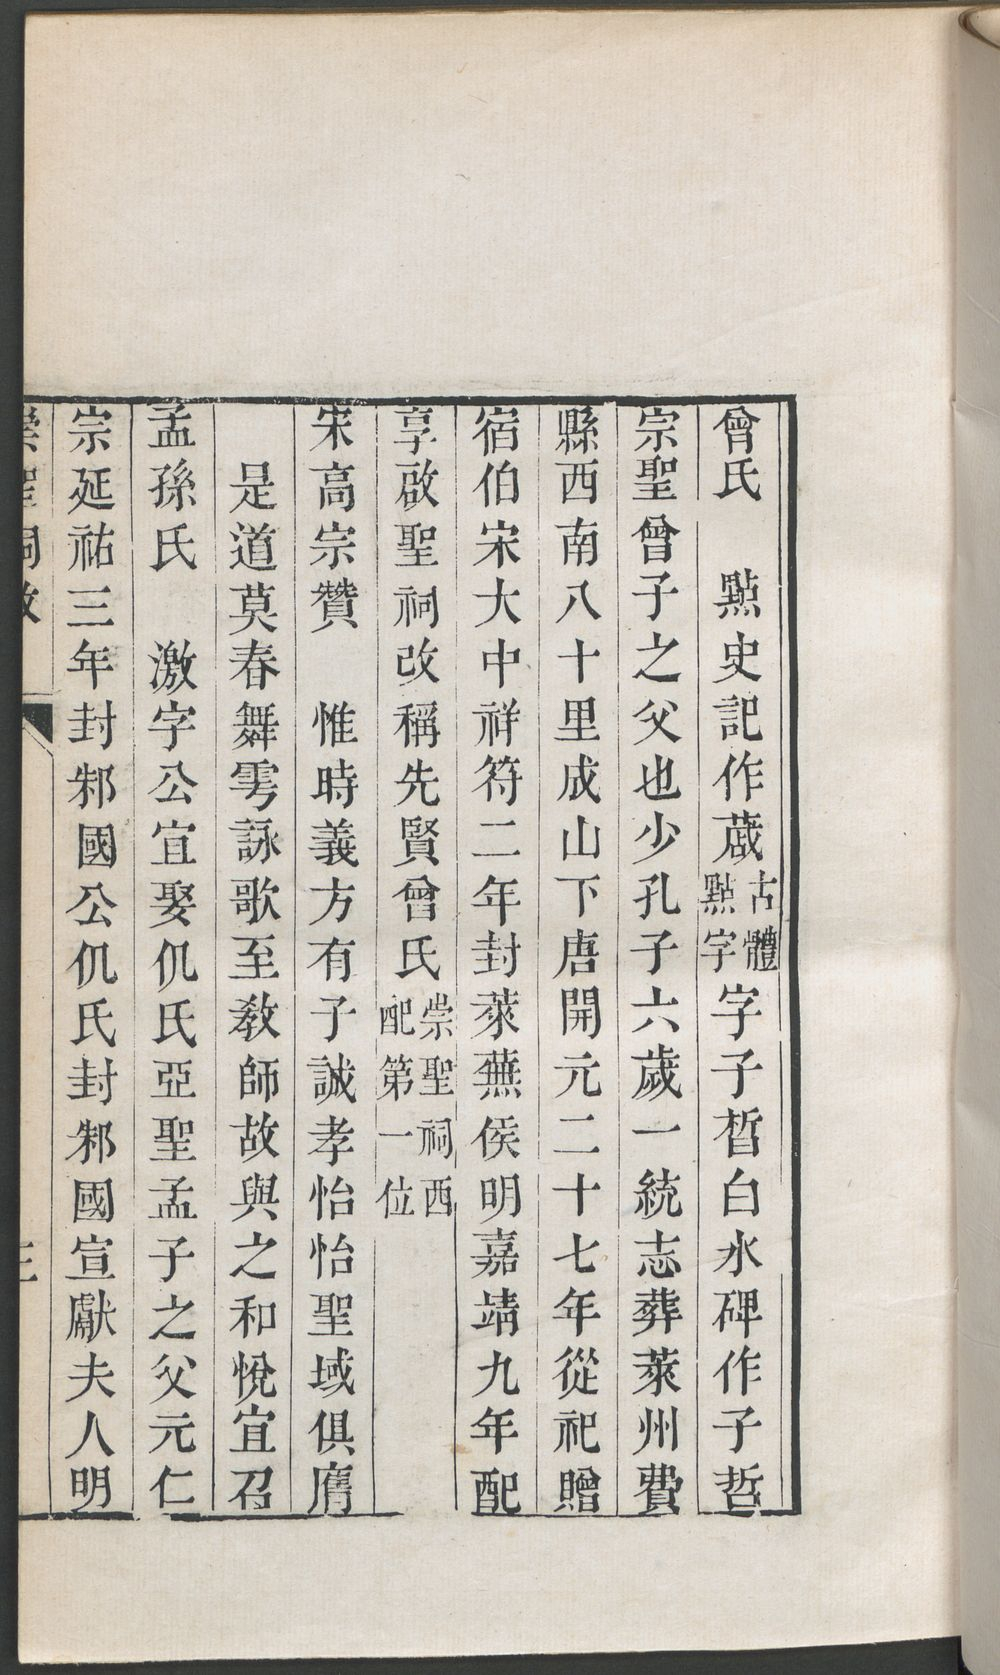 曾氏　點史記作蒧古體點字字子晳白水碑作子晢
宗聖曾子之父也少孔子六歲一統志葬萊州費
縣西南八十里成山下唐開元二十七年從祀贈
宿伯宋大中祥符二年封萊蕪侯明嘉靖九年配
享啟聖祠改稱先賢曾氏崇聖祠西配第一位
宋高宗贊　惟時義方有子誠孝怡怡聖域俱膺
是道莫春舞雩詠歌至教師故與之和悅宜召
孟孫氏　激字公宜娶仉氏亞聖孟子之父元仁
宗延祐三年封邾國公仉氏封邾國宣獻夫人明
崇聖祠攷
三